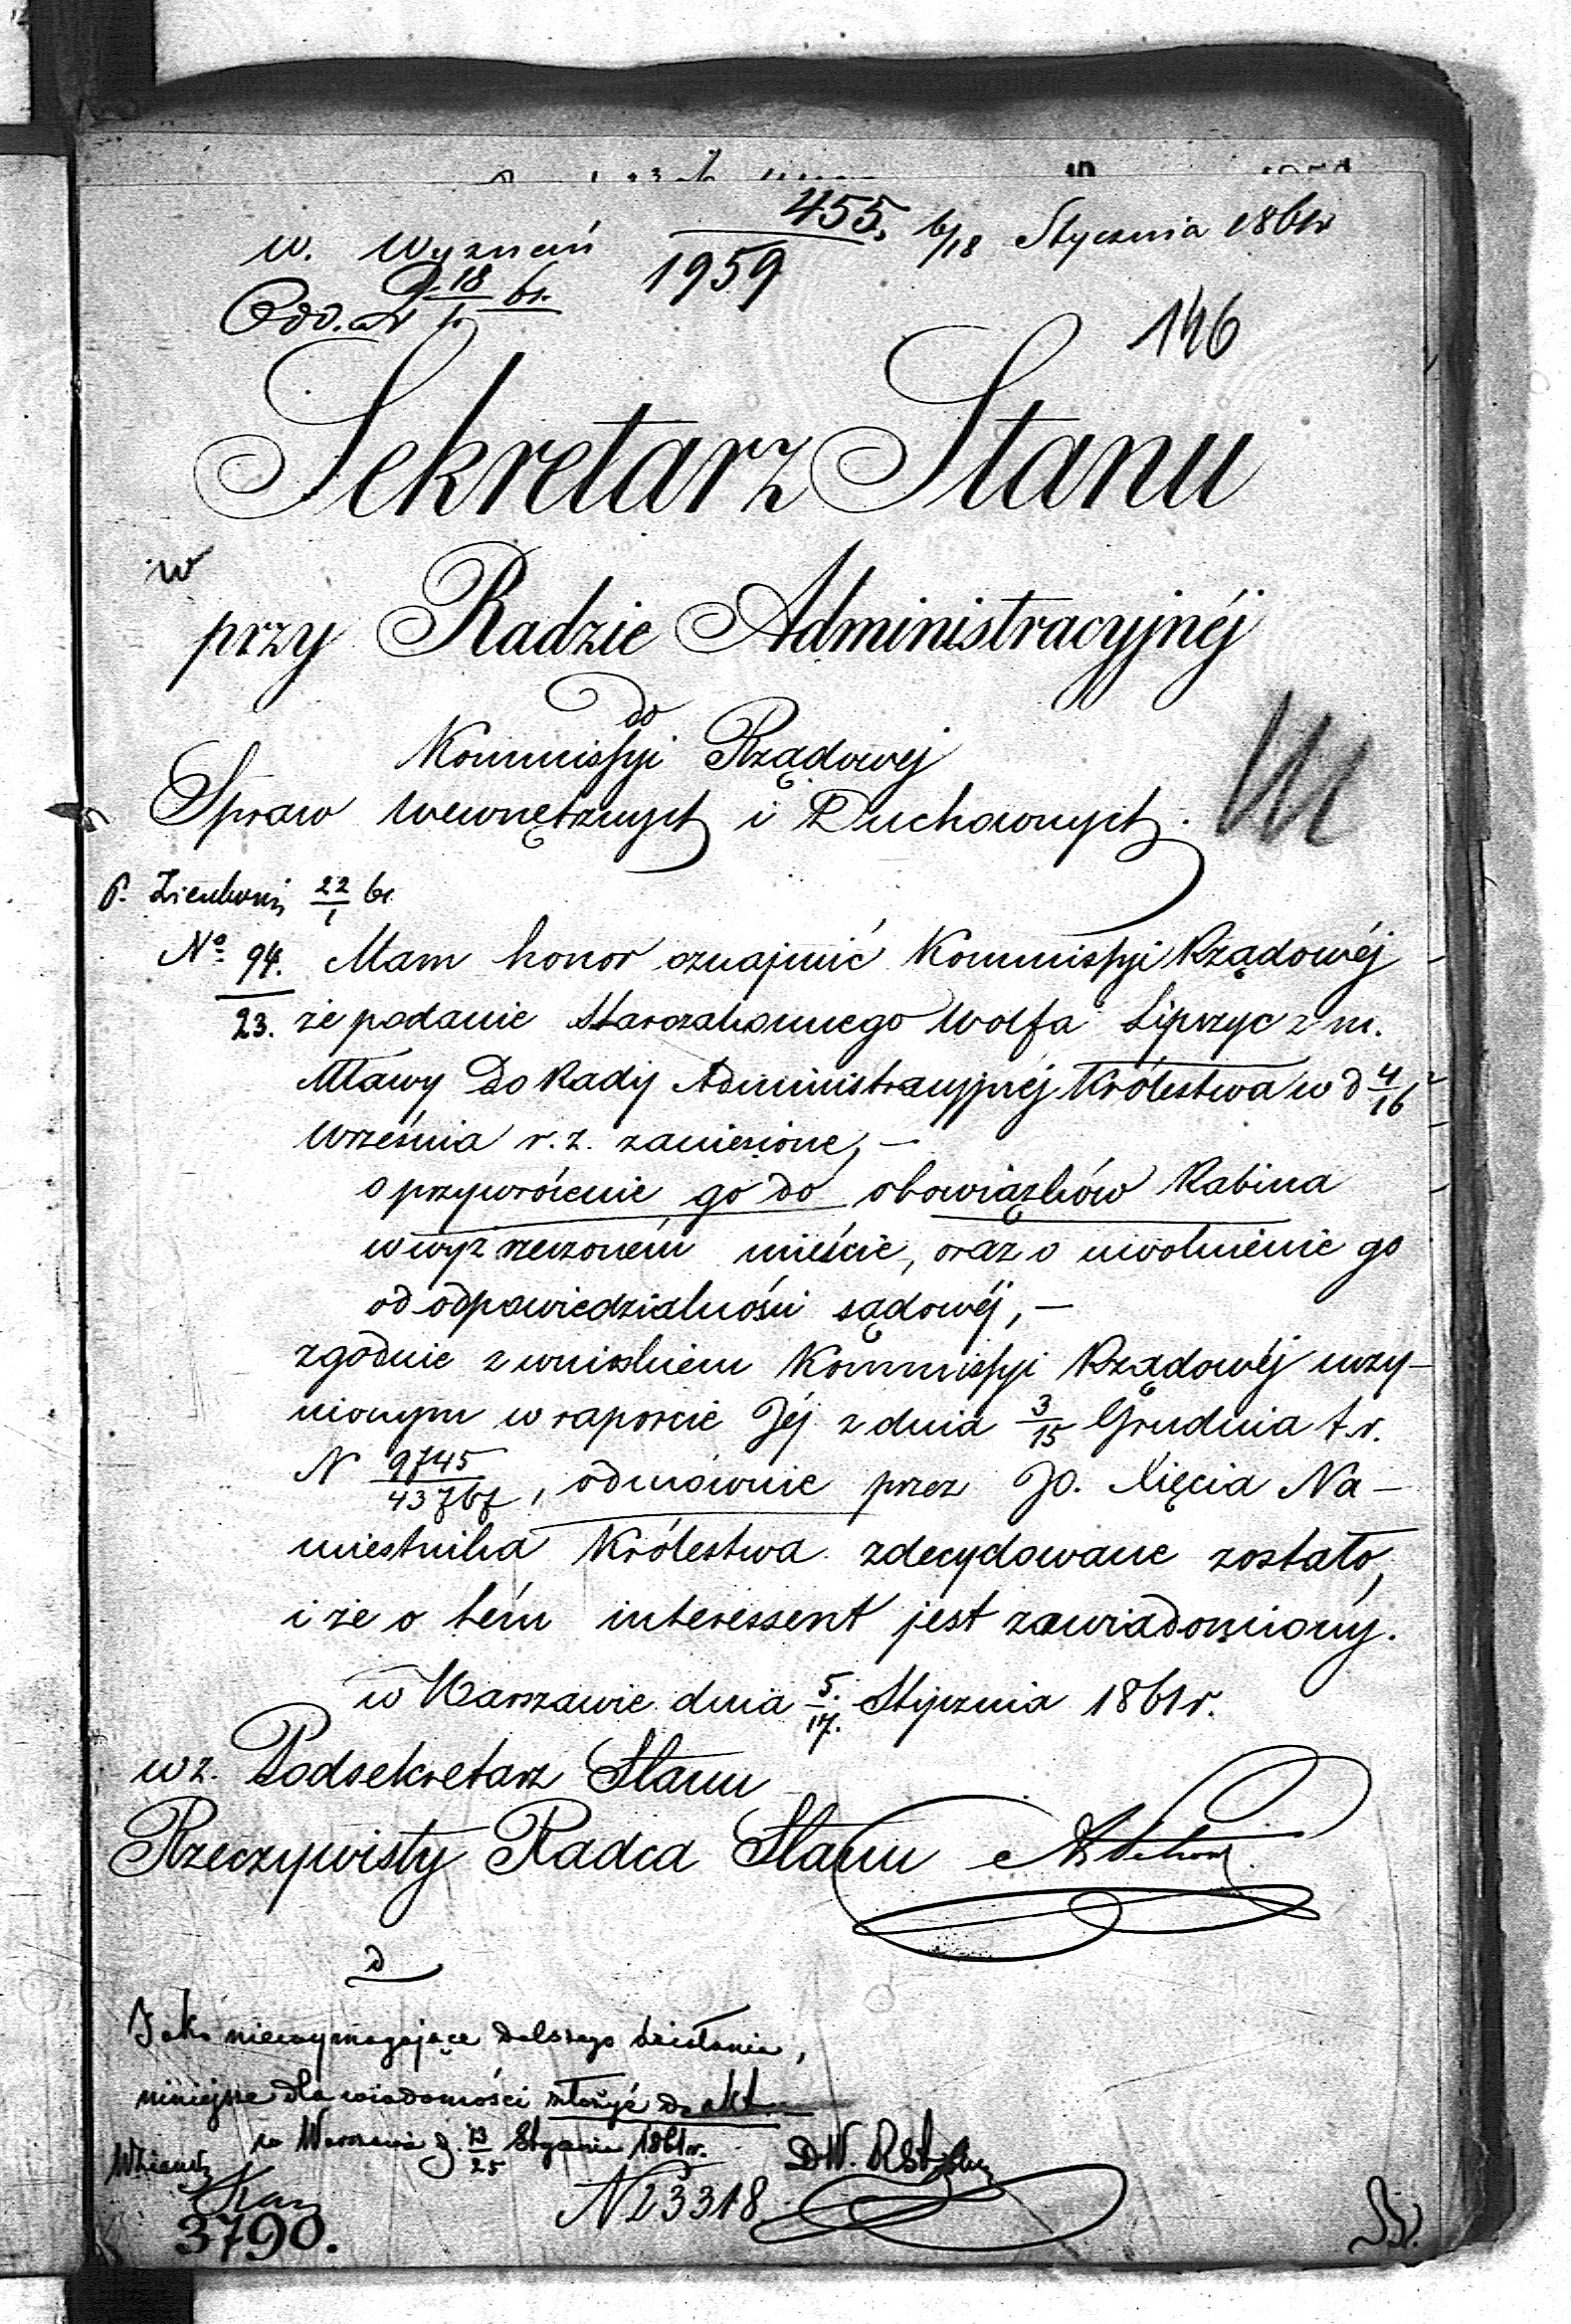 w. Wyznań 455. 6/18 Stycznia 1861r
1959
Odd. 18/1 61.
146
Sekretarz Stanu
w
przy Radzie Administracyjnéj
do
Kommissyi Rządowej
Spraw Wewnętrznych i Duchownych.
P. 22/1 61
No 94. Mam honor oznajmić Kommissyi Rządowéj
23. że podanie Starozakonnego Wolfa Lipszyc z m.
Mławy do Rady Administracyjnéj Królestwa w d 4/16
Września r. z. zaniesione, —
o przywrócenie go do obowiązków Rabina
w wyż rzeczoném mieście, oraz o uwolnienie go
od odpowiedzialności sądowéj, —
zgodnie z wnioskiem Kommissyi Rządowéj uczy-
nionym w raporcie Jéj z dnia 3/15 Grudnia t. r.
N 9745/43767, odmównie przez JO. Xięcia Na-
miestnika Królestwa zdecydowane zostało,
i że o tém interessent jest zawiadomiony.
w Warszawie dnia 5./17. Stycznia 1861r.
w z. Podsekretarz Stanu
Rzeczywisty Radca Stanu
d
Jako niewymagające dalszego działania,
niniejsze dla wiadomości złożyć do akt
w Warszawie d. 13/25 Stycznia 1861r.
DW.
N23318.
3790.